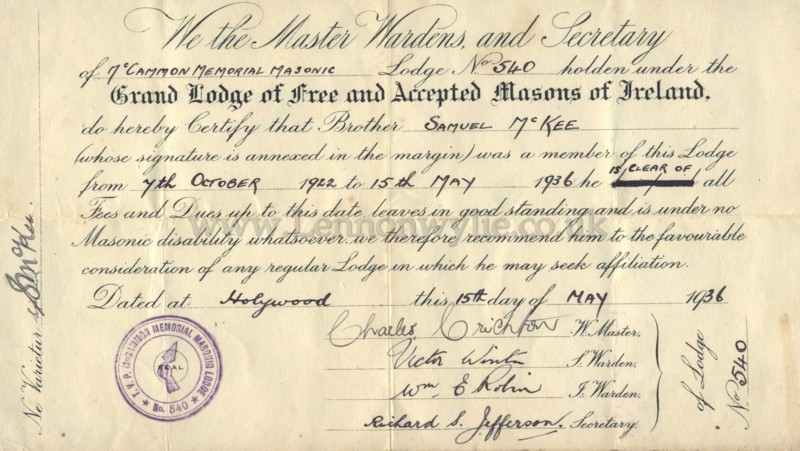 We the Master Wardens, and Secretary
of McCammon Memorial Masonic Lodge No 540 holden under the
Grand Lodge of Free and Accepted Masons of Ireland,
do hereby Certify that Brother Samuel McKee
(whose signature is annexed in the margin) was a member of this Lodge
from 7th October 1922 to 15th May 1936 he is clear of all
Fees and Dues up to this date, leaves in good standing and is under no
Masonic disability whatsoever, we therefore recommend him to the favourable
consideration of any regular Lodge in which he may seek affiliation.
Dated at Holywood this 15th day of May 1936
Charles Crichton W. Master.
Victor S. Warden.
Wm E Robin J. Warden.
Richard S. Jefferson. Secretary.
of Lodge
No 540
Ne Varietur
S McKee.
MCCAMMON MEMORIAL MASONIC LODGE
SEAL
No. 540
www.Lennonwylie.co.uk